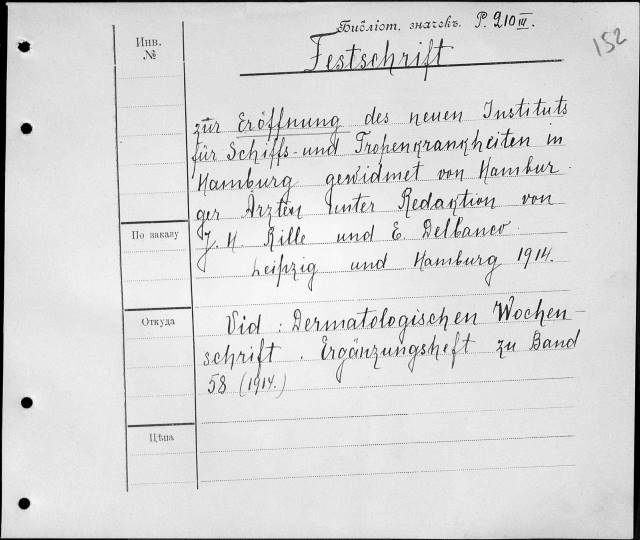 Библіот. значекъ. P. 210 III.
152
Инв.
№
Festschrift
zur Eröffnung des neuen Instituts
für Schiffs- und Tropenkrankheiten in
Hamburg gewidmet von Hambur-
ger Ärzten unter Redaktion von
По заказу
J. H. Rille und E. Delbanco.
Leipzig und Hamburg 1914.
Откуда
Vid: Dermatologischen Wochen-
schrift. Ergänzungsheft zu Band
58 (1914.)
Цѣна